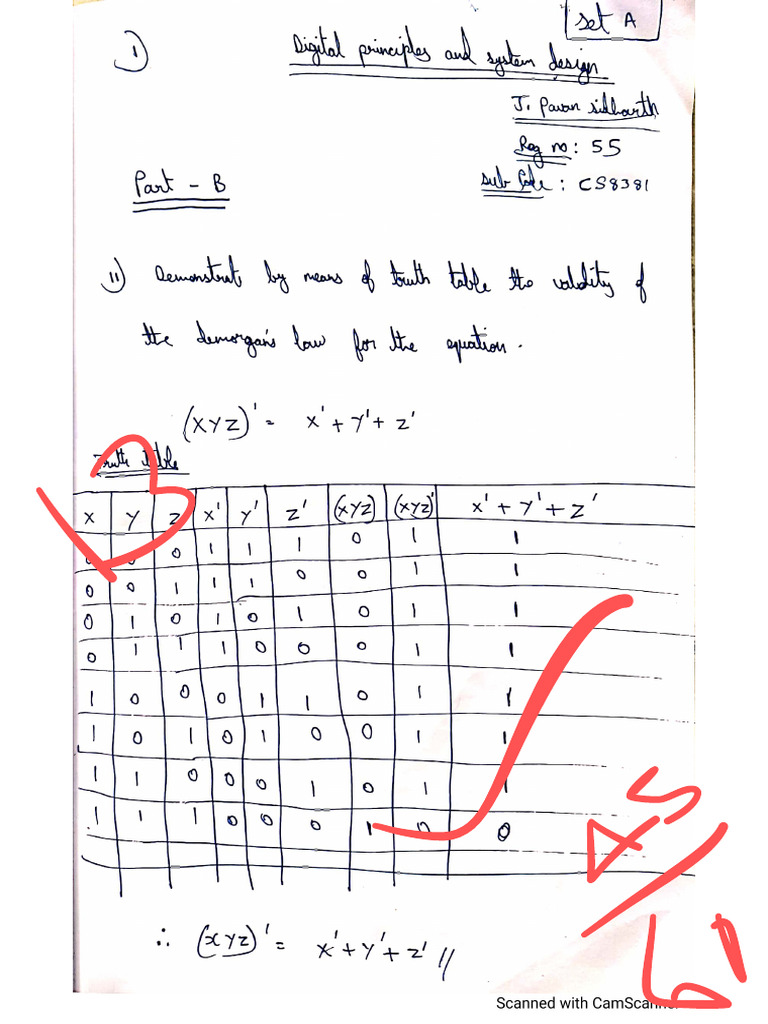 set A
1)
Digital principles and system design
J. Pavan sidharth
Reg no: 55
Part - B
Sub Code: CS8381
11) Demonstrat by means of truth table the validity of
the demorgan's law for the equation.
(XYZ)' = X' + Y' + Z'
Truth table
X Y Z X' Y' Z' (XYZ) (XYZ)' X' + Y' + Z'
0 0 0 1 1 1 0 1 1
0 0 1 1 1 0 0 1 1
0 1 0 1 0 1 0 1 1
0 1 1 1 0 0 0 1 1
1 0 0 0 1 1 0 1 1
1 0 1 0 1 0 0 1 1
1 1 0 0 0 1 0 1 1
1 1 1 0 0 0 1 0 0
∴ (XYZ)' = X' + Y' + Z' //
13
45
/
60
Scanned with CamScanner